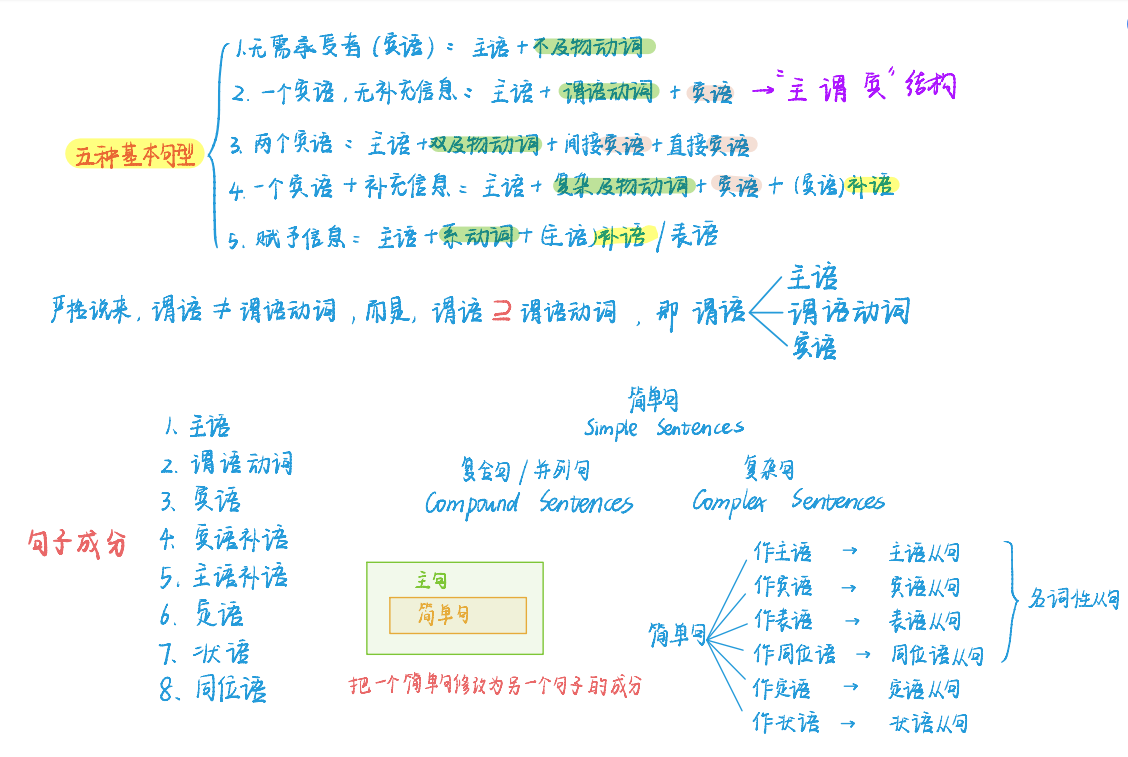 五种基本句型
1.无需承受者(宾语)= 主语+不及物动词
2. 一个宾语,无补充信息= 主语+谓语动词+宾语 → "主谓宾"结构
3. 两个宾语= 主语+双及物动词+间接宾语+直接宾语
4. 一个宾语+补充信息= 主语+复杂及物动词+宾语+(宾语)补语
5. 赋予信息= 主语+系动词+(主语)补语/表语
严格说来,谓语≠谓语动词,而是,谓语⊇谓语动词,即 谓语
主语
谓语动词
宾语
句子成分
1、主语
2. 谓语动词
3、宾语
4. 宾语补语
5. 主语补语
6. 定语
7、状语
8、同位语
简单句
Simple Sentences
复合句/并列句
Compound Sentences
复杂句
Complex Sentences
主句
简单句
把一个简单句修改为另一个句子的成分
简单句
作主语 → 主语从句
作宾语 → 宾语从句
作表语 → 表语从句
作同位语 → 同位语从句
作定语 → 定语从句
作状语 → 状语从句
名词性从句